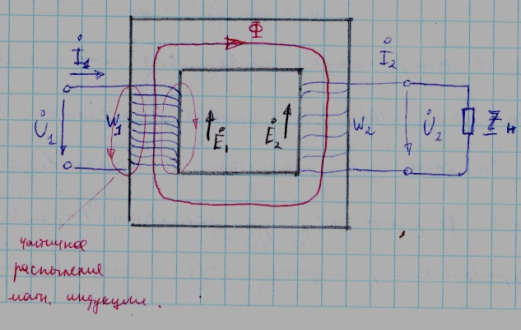 Φ
İ₁
İ₂
U̇₁
W₁
Ė₁
Ė₂
W₂
U̇₂
Z н
частичное
распыления
магн. индукции.